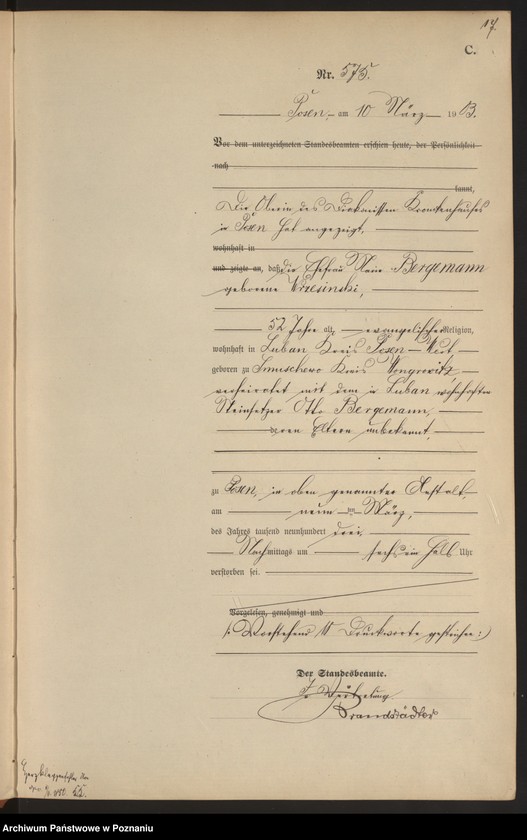 17.
C.
Nr. 575.
Posen, am 10 März 1903.
Vor dem unterzeichneten Standesbeamten erschien heute, der Persönlichkeit
nach
kannt,
Die Oberin des Diakonissen Krankenhauses
in Posen hat angezeigt,
wohnhaft in
und zeigte an, daß die Ehefrau Marie Bergemann
geborene Wrzesinski,
52 Jahre alt, evangelischer Religion,
wohnhaft in Luban Kreis Posen-West
geboren zu Kreis Wongrowitz,
verheiratet mit dem in Luban wohnhaften
Steinsetzer Otto Bergemann,
deren Eltern unbekannt,
zu Posen, in oben genannter Anstalt,
am neun ten März,
des Jahres tausend neunhundert drei,
Nachmittags um sechs ein halb Uhr
verstorben sei.
Vorgelesen, genehmigt und
/: Vorstehend 11 Druckworte gestrichen :/
Der Standesbeamte.
In Vertretung
Brandstädter
55.
Archiwum Państwowe w Poznaniu